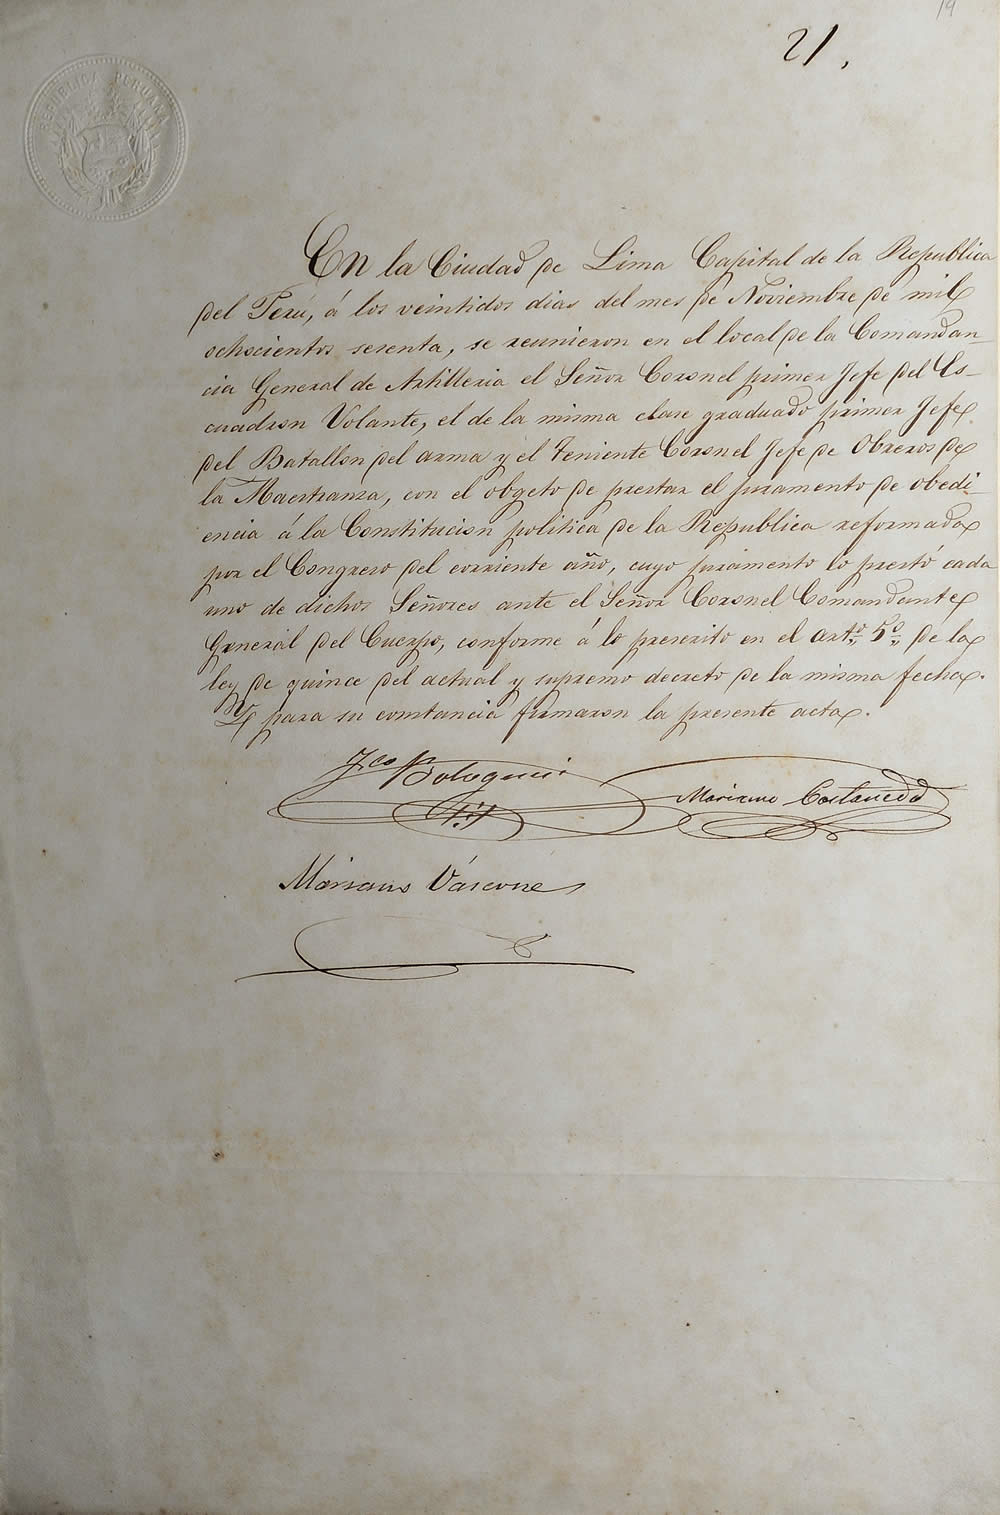 19
21.
REPUBLICA PERUANA
En la Ciudad de Lima Capital de la Republica
del Perú, á los veintidos dias del mes de Noviembre de mil
ochocientos sesenta, se reunieron en el local de la Comandan-
cia General de Artilleria el Señor Coronel primer Jefe del Es-
cuadron Volante, el de la misma clase graduado primer Jefe
del Batallon del arma y el Teniente Coronel Jefe de Obreros de
la Maestranza, con el obgeto de prestar el juramento de obedi-
encia á la Constitucion politica de la Republica reformada
por el Congreso del corriente año, cuyo juramento lo prestó cada
uno de dichos Señores ante el Señor Coronel Comandante
General del Cuerpo, conforme á lo prescrito en el arto. 5o. de la
ley de quince del actual y supremo decreto de la misma fecha.
Y para su constancia firmaron la presente acta.
Fco Bolognesi
Mariano
Mariano